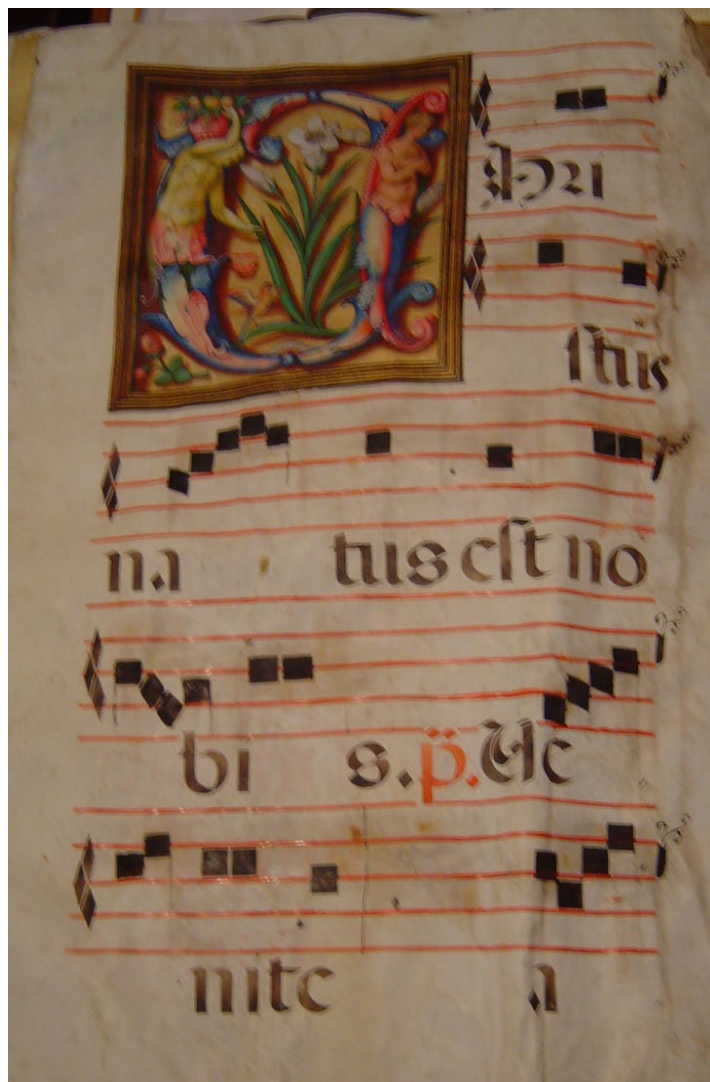 Chri
stus
na tus est no
bi s. p̈. Ve
nite a